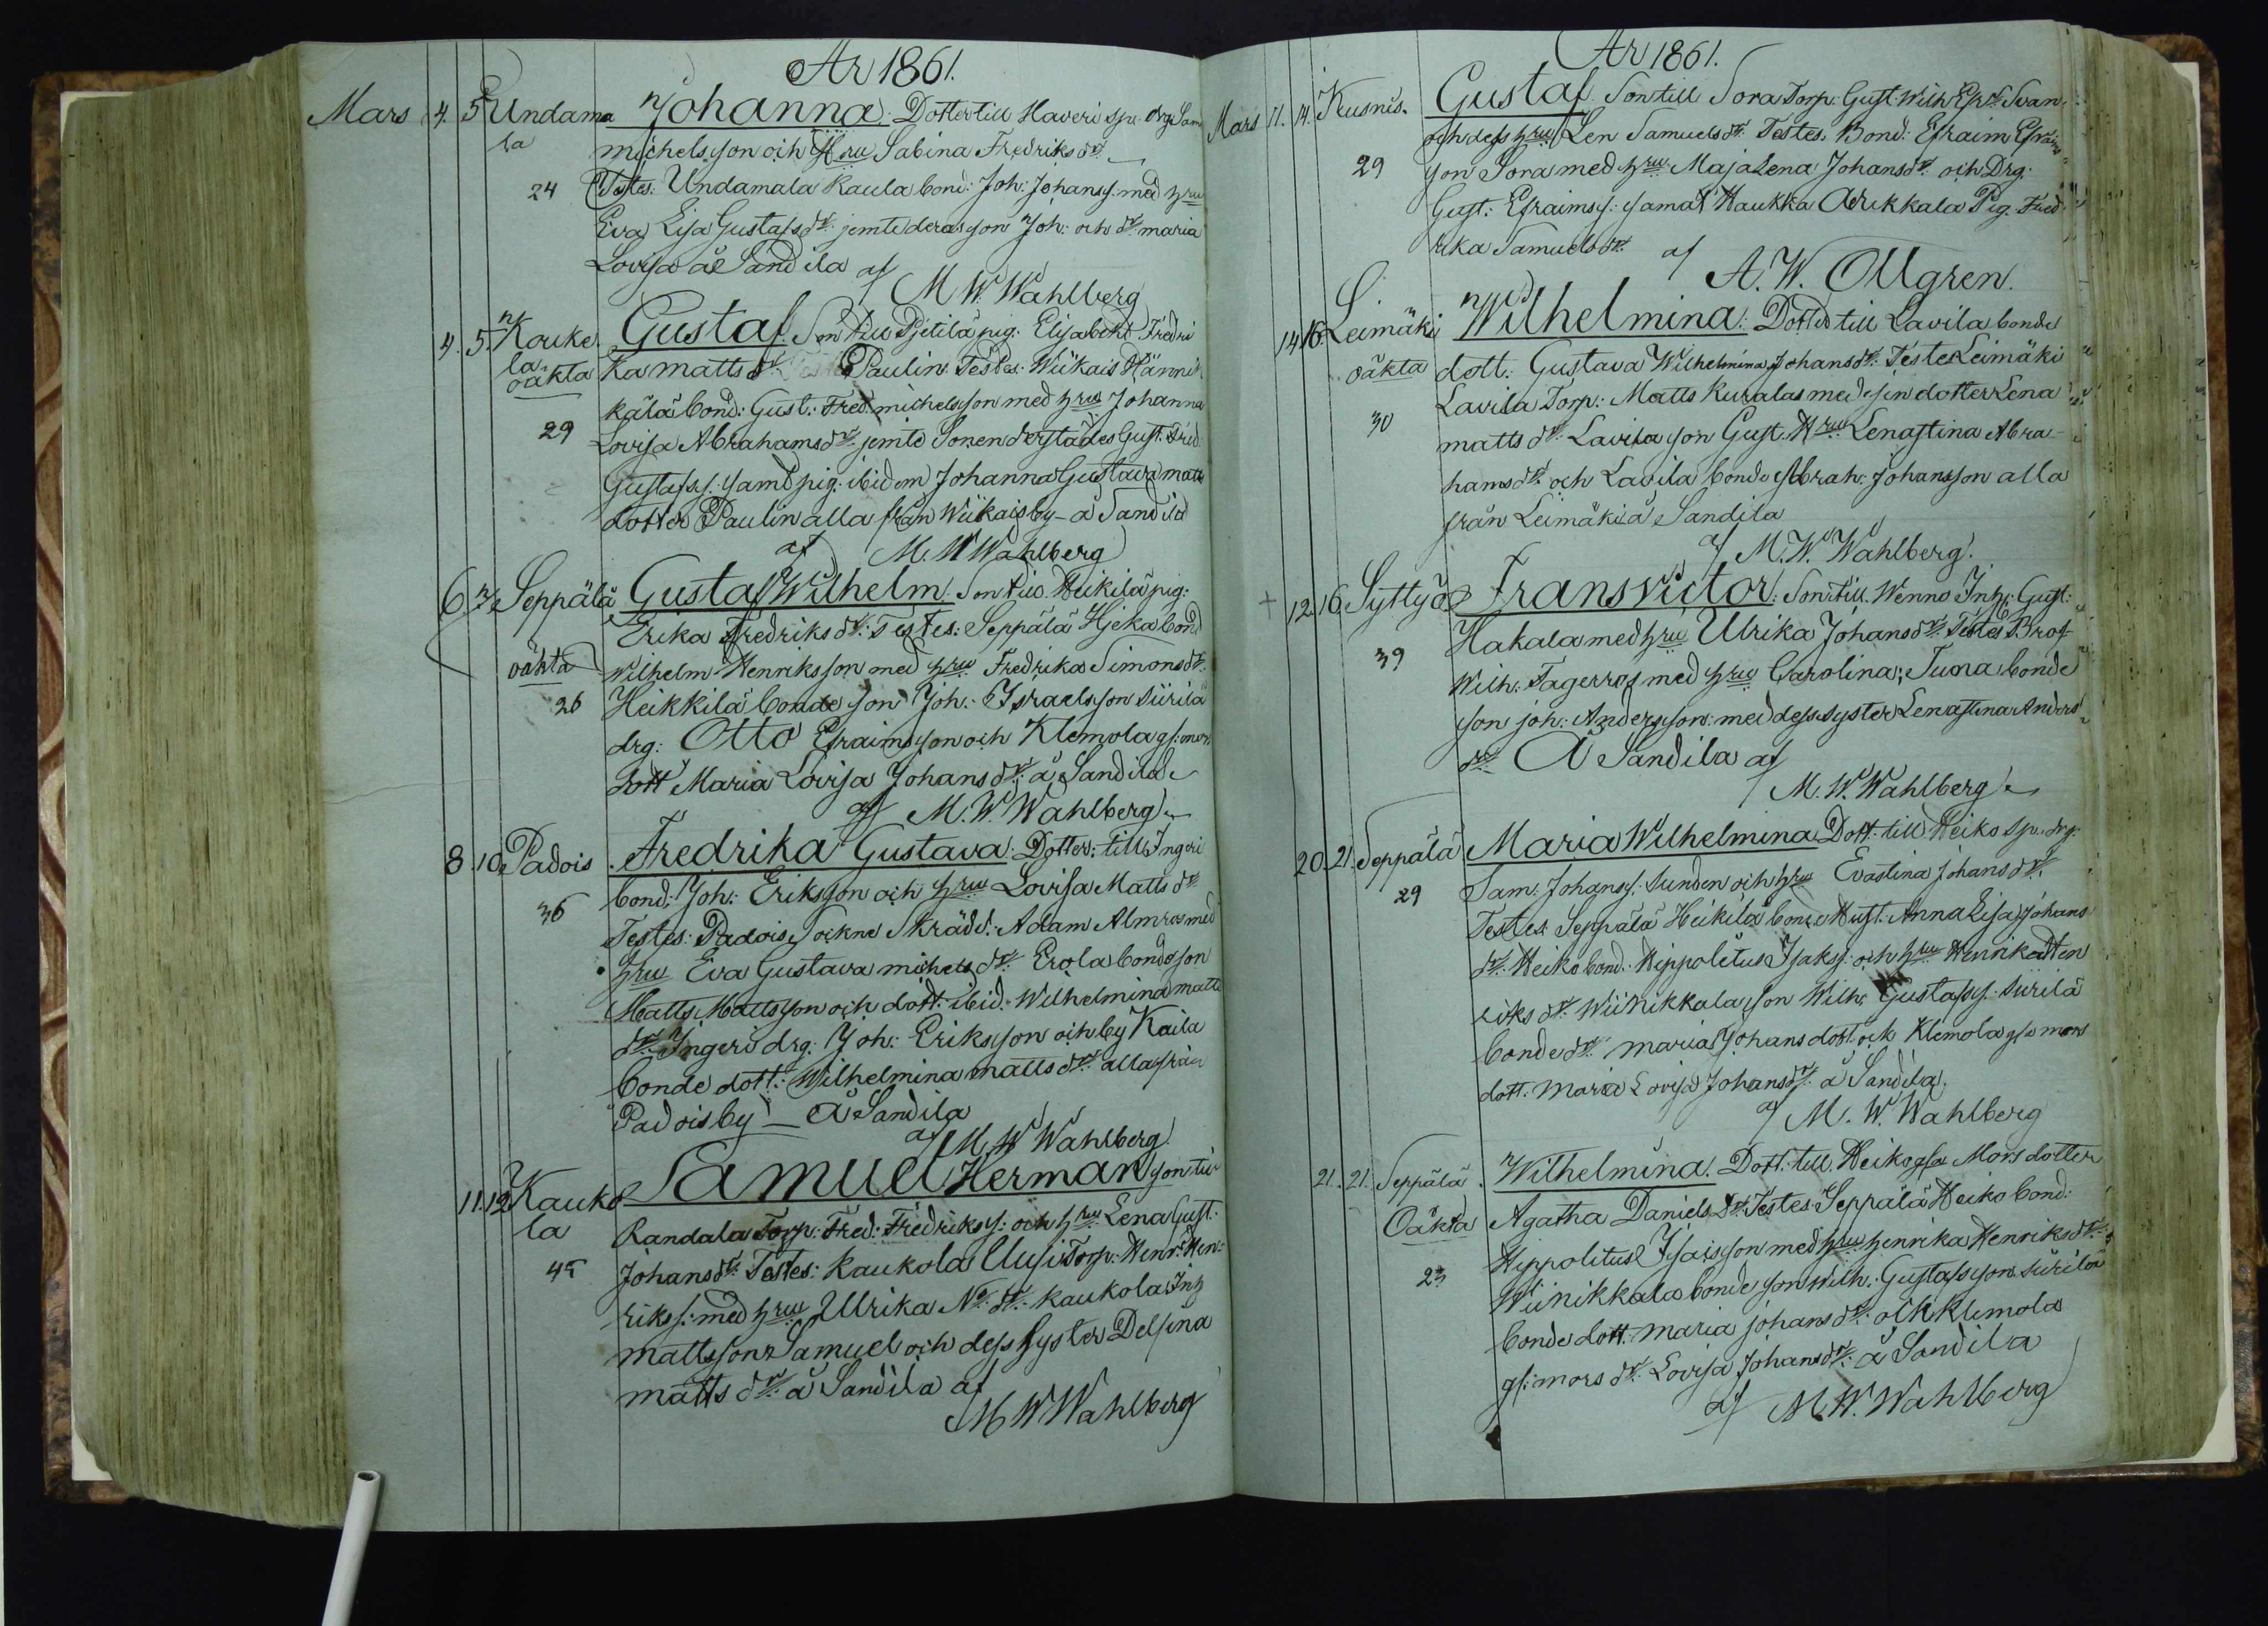 År 1861.
Mars 4. 5 Undama Johanna. Dotter till Haveri spu drg Sam
la michelsson och Hru Sabina Fredriks dr.
24 Testes: Undamala Kaula bond: Joh: Johanss. med hru
Eva Lisa Gustafs dr. jemte deras son Joh: och dr. maria
Lovisa å Sandila af
M W. Wahlberg
4. 5. Kauko Gustaf. Son till Pietilä pig. Elisabeth Fredri
la ka matts dr. Paulin. Testes. Wiikais Hänni
oäkta
kälä bond: Gust: Fred. michelsson med hru Johanna
29 Lovisa Abrahams dr. jemte Sonen derstädes Gust. Fred.
Gustafss. samt pig. ibidem Johanna Gustava matts
dotter Paulin alla från Wiikais by - å Sandila
af M. W Wahlberg
6. 7. Seppälä Gustaf Wilhelm. Son till Heikilä pig:
Erika Fredriks dr: Testes: Seppälä Hjeka bond
oäkta Wilhelm Henriksson med hru Fredrika Simons dr.
26 Heikkilä bonde son Joh: Israelsson Siirilä
drg: Otto Efraimsson och Klemola gs: mors
dott Maria Lovisa Johans dr. å Sandila
af M. W. Wahlberg
8. 10. Padois Fredrika Gustava. Dotter: till Ingeri
bond: Joh: Eriksson och hru Lovisa Matts dr.
36 Testes: Padois sockne skrädd: Adam Almros med
hru Eva Gustava michels dr. Erola bondeson
Matts Mattsson och dott. ibid: Wilhelmina matts
dr. Ingeri drg. Joh: Eriksson och by Kaila
bonde dott: Wilhelmina matts dr. alla från
Padois by - å Sandila
af M. W Wahlberg
11. 12 Kauko Samuel Herman son till
la Randala Torp: Fred: Fredrikss: och hru Lena Gust.
45 Johans dr. Testes: Kaukola Uusi Torp: Henr: Hen-
rikss: med hru Ulrika No: dr: Kaukola Inh
mattsson Samuel och dess syster Delfina
matts dr. å Sandila af
M W Wahlberg
År 1861.
Mars 11. 14. Kusnis. Gustaf Son till Sora Torp: Gust. Wilh Efr: Svan
och dess hru Len Samuels dr: Testes. Bond: Efraim Efraims
29 son Sora med hru Maja Lena Johans dr. och Drg.
Gust: Efraimss: samt Haukka Arikkala Pig. Fred
rika Samuels dr. af
A. W. Ollgren.
14 16. Leimäki Wilhelmina: Dotter till Lavila bonde
oäkta dott: Gustava Wilhelmina Johans dr: Testes Leimäki
30 Lavila Torp: Matts Kuralas med sin dotter Lena
matts dr. Lavila son Gust. Hru Lenastina Abra-
hams dr. och Lavila bonde Abrah: Johansson alla
från Leimäki å Sandila
af M. W. Wahlberg.
+ 12. 16 Syttyä Frans Victor: Son till. Wenno Inh: Gust:
39 Hakala med hru Ulrika Johans dr. Testes Brof
Wilh: Fagerros med hru Carolina; Tuora bonde
son joh: Andersson: med dess syster Lenastina Anders
dr. Å Sandila af
M. W. Wahlberg
20. 21. Seppälä Maria Wilhelmina Dott. till Heiko sp. drg.
29 Sam. Johanss. Sunden och hru Evastina Johans dr.
Testes Seppälä Heikilä bond Hust. Anna Lisa Johans
dr. Heiko bond. Hippolitus Isaks: och hru Henrika Hen
riks dr. Wiinikkala son Wilh: Gustafss: Siirilä
bonde dr. maria Johans dott. och Klemola gs mors
dott. maria Lovisa Johans dr. å Sandila
af M. W. Wahlberg
21. 21. Seppälä. Wilhelmina. Dott. till. Heiko gsa Mors dotter
Oäkta Agatha Daniels dr. Testes Seppälä Heiko bond:
Hippolitus Isaisson med hru henrika Henriks dr.
23 Wiinikkala bonde son Wilh: Gustafsson Siirilä
bonde dott. maria johans dr: och Klemola
gs: mors dr. Lovisa Johans dr: å Sandila
af M. W. Wahlberg